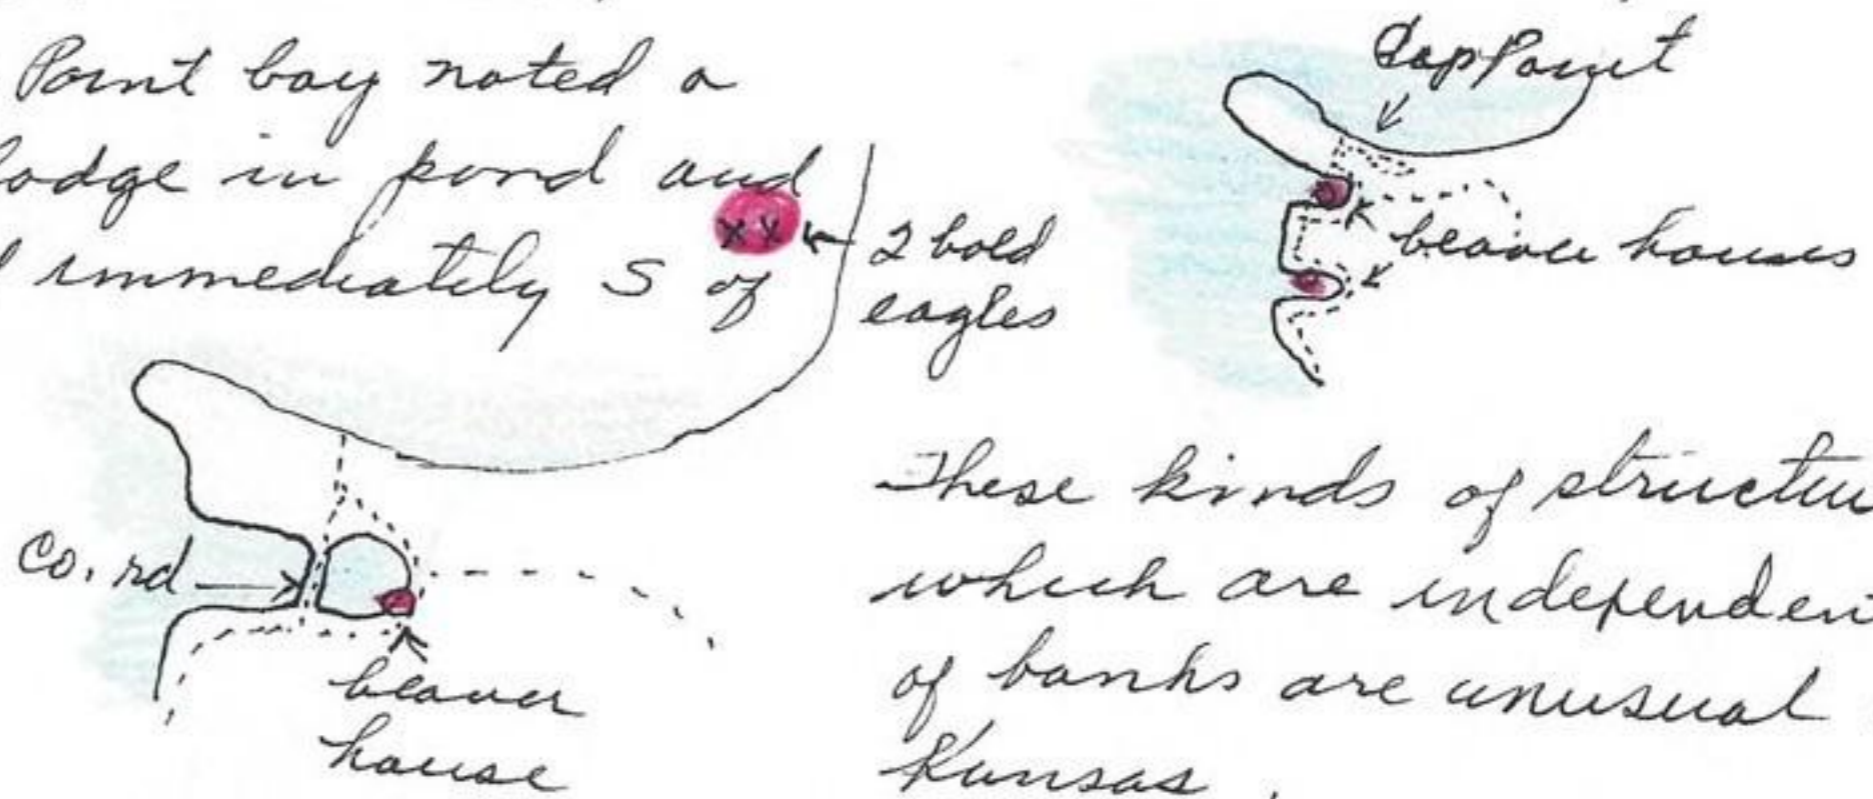 Point bay noted a
lodge in pond and
immediately S of
2 bald
eagles
Co. rd
beaver
house
Point
beaver houses
These kinds of structu
which are independen
of banks are unusual
Kansas.